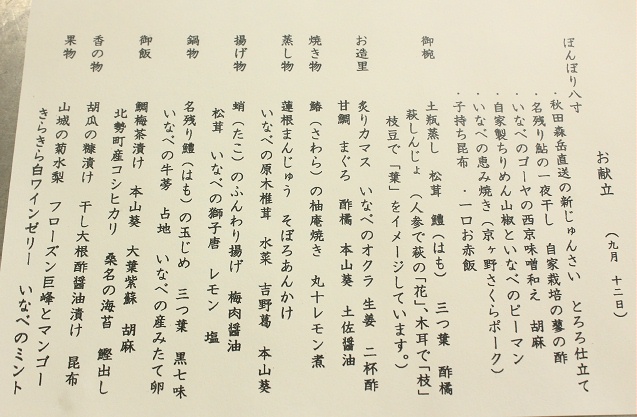 お献立 (九月 十二日)
ほんぼり八寸
・秋田森岳直送の新じゅんさい とろろ仕立て
・名残り鮎の一夜干し 自家栽培の蓼の酢
・いなべのゴーヤの西京味噌和え 胡麻
・自家製ちりめん山椒といなべのピーマン
・いなべの恵み焼き(京ヶ野さくらポーク)
・子持ち昆布 ・一口お赤飯
御椀 土瓶蒸し 松茸 鱧(はも) 三つ葉 酢橘
萩しんじょ (人参で萩の「花」、木耳で「枝」
枝豆で「葉」をイメージしています。)
お造里 炙りカマス いなべのオクラ 生姜 二杯酢
甘鯛 まぐろ 酢橘 本山葵 土佐醤油
焼き物 鰆(さわら)の柚庵焼き 丸十レモン煮
蒸し物 蓮根まんじゅう そぼろあんかけ
いなべの原木椎茸 水菜 吉野葛 本山葵
揚げ物 蛸(たこ)のふんわり揚げ 梅肉醤油
松茸 いなべの獅子唐 レモン 塩
鍋物 名残り鱧(はも)の玉じめ 三つ葉 黒七味
いなべの牛蒡 占地 いなべの産みたて卵
御飯 鯛梅茶漬け 本山葵 大葉紫蘇 胡麻
北勢町産コシヒカリ 桑名の海苔 鰹出し
香の物 胡瓜の糠漬け 干し大根酢醤油漬け 昆布
果物 山城の菊水梨 フローズン巨峰とマンゴー
きらきら白ワインゼリー いなべのミント